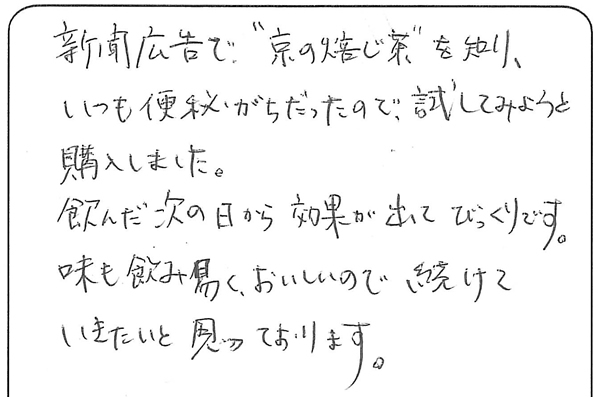 新聞広告で、"京の焙じ茶"を知り、
いつも便秘がちだったので、試してみようと
購入しました。
飲んだ次の日から効果が出てびっくりです。
味も飲み易く、おいしいので続けて
いきたいと思っております。